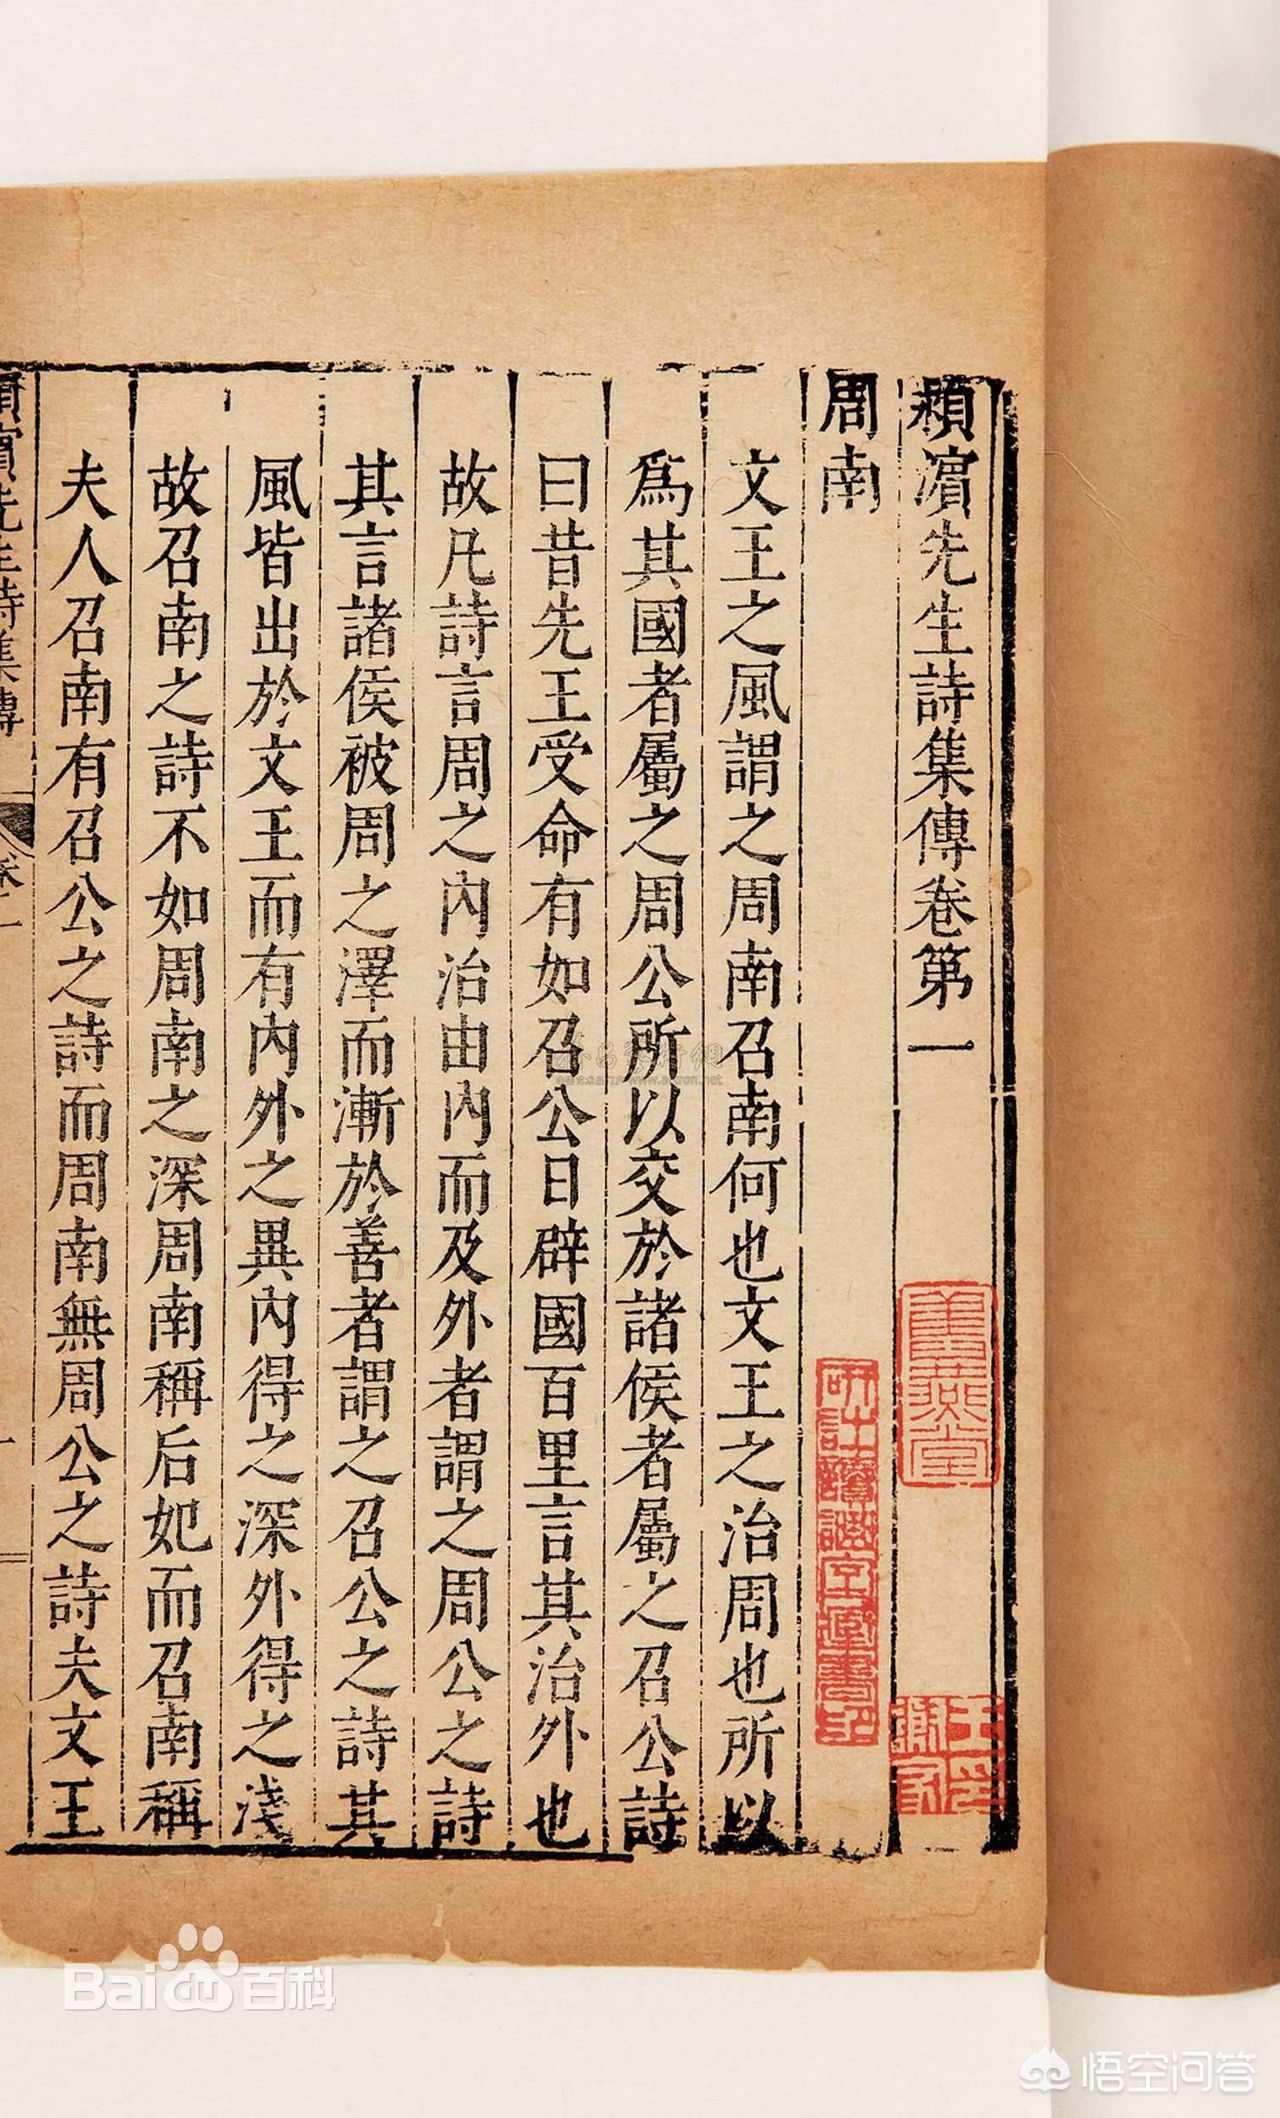 潁濵先生詩集傳卷第一
周南
文王之風謂之周南召南何也文王之治周也所以
爲其國者屬之周公所以交於諸侯者屬之召公詩
曰昔先王受命有如召公日辟國百里言其治外也
故凡詩言周之內治由內而及外者謂之周公之詩
其言諸侯被周之澤而漸於善者謂之召公之詩其
風皆出於文王而有內外之異內得之深外得之淺
故召南之詩不如周南之深周南稱后妃而召南稱
夫人召南有召公之詩而周南無周公之詩夫文王
潁濵先生詩集傳
卷一
一
Bai百科
悟空问答